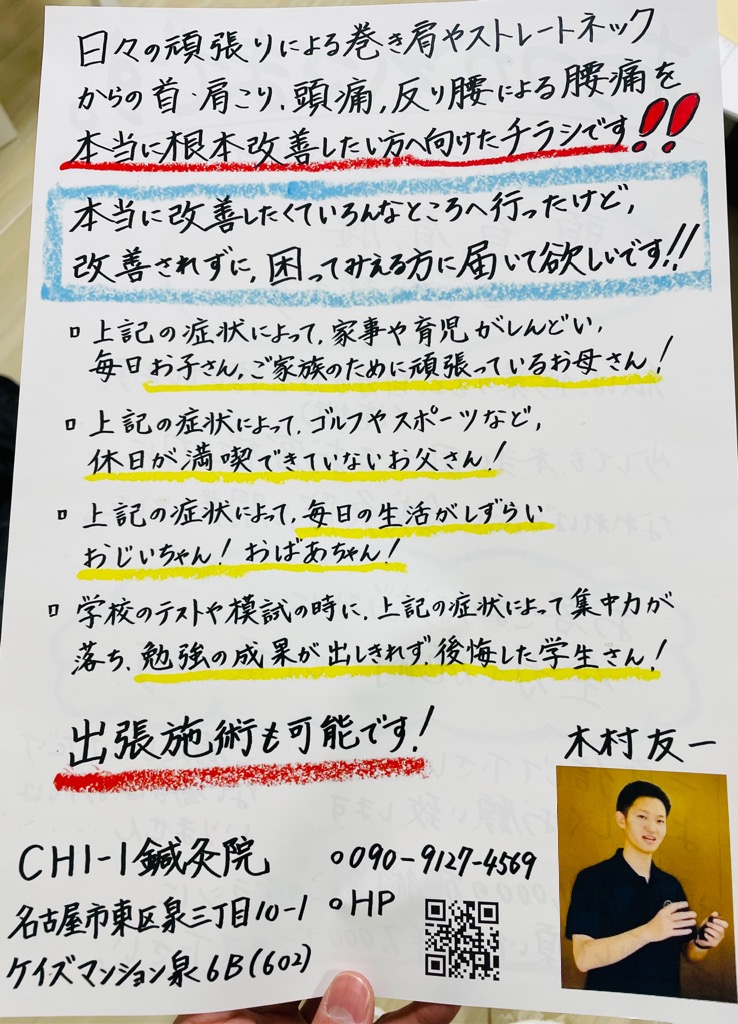 日々の頑張りによる巻き肩やストレートネック
からの首・肩こり、頭痛、反り腰による腰痛を
本当に根本改善したい方へ向けたチラシです!!
本当に改善したくていろんなところへ行ったけど、
改善されずに、困ってみえる方に届いて欲しいです!!
▫ 上記の症状によって、家事や育児がしんどい、
毎日お子さん、ご家族のために頑張っているお母さん!
▫ 上記の症状によって、ゴルフやスポーツなど、
休日が満喫できていないお父さん!
▫ 上記の症状によって、毎日の生活がしずらい
おじいちゃん!おばあちゃん!
▫ 学校のテストや模試の時に、上記の症状によって集中力が
落ち、勉強の成果が出しきれず、後悔した学生さん!
出張施術も可能です!
木村友一
CHI-I鍼灸院
名古屋市東区泉三丁目10-1
ケイズマンション泉6B(602)
○090-9127-4569
○HP